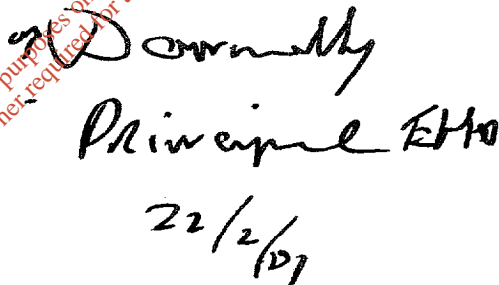 purposes on
ner required for
Donnelly
Principal EHO
22/2/07